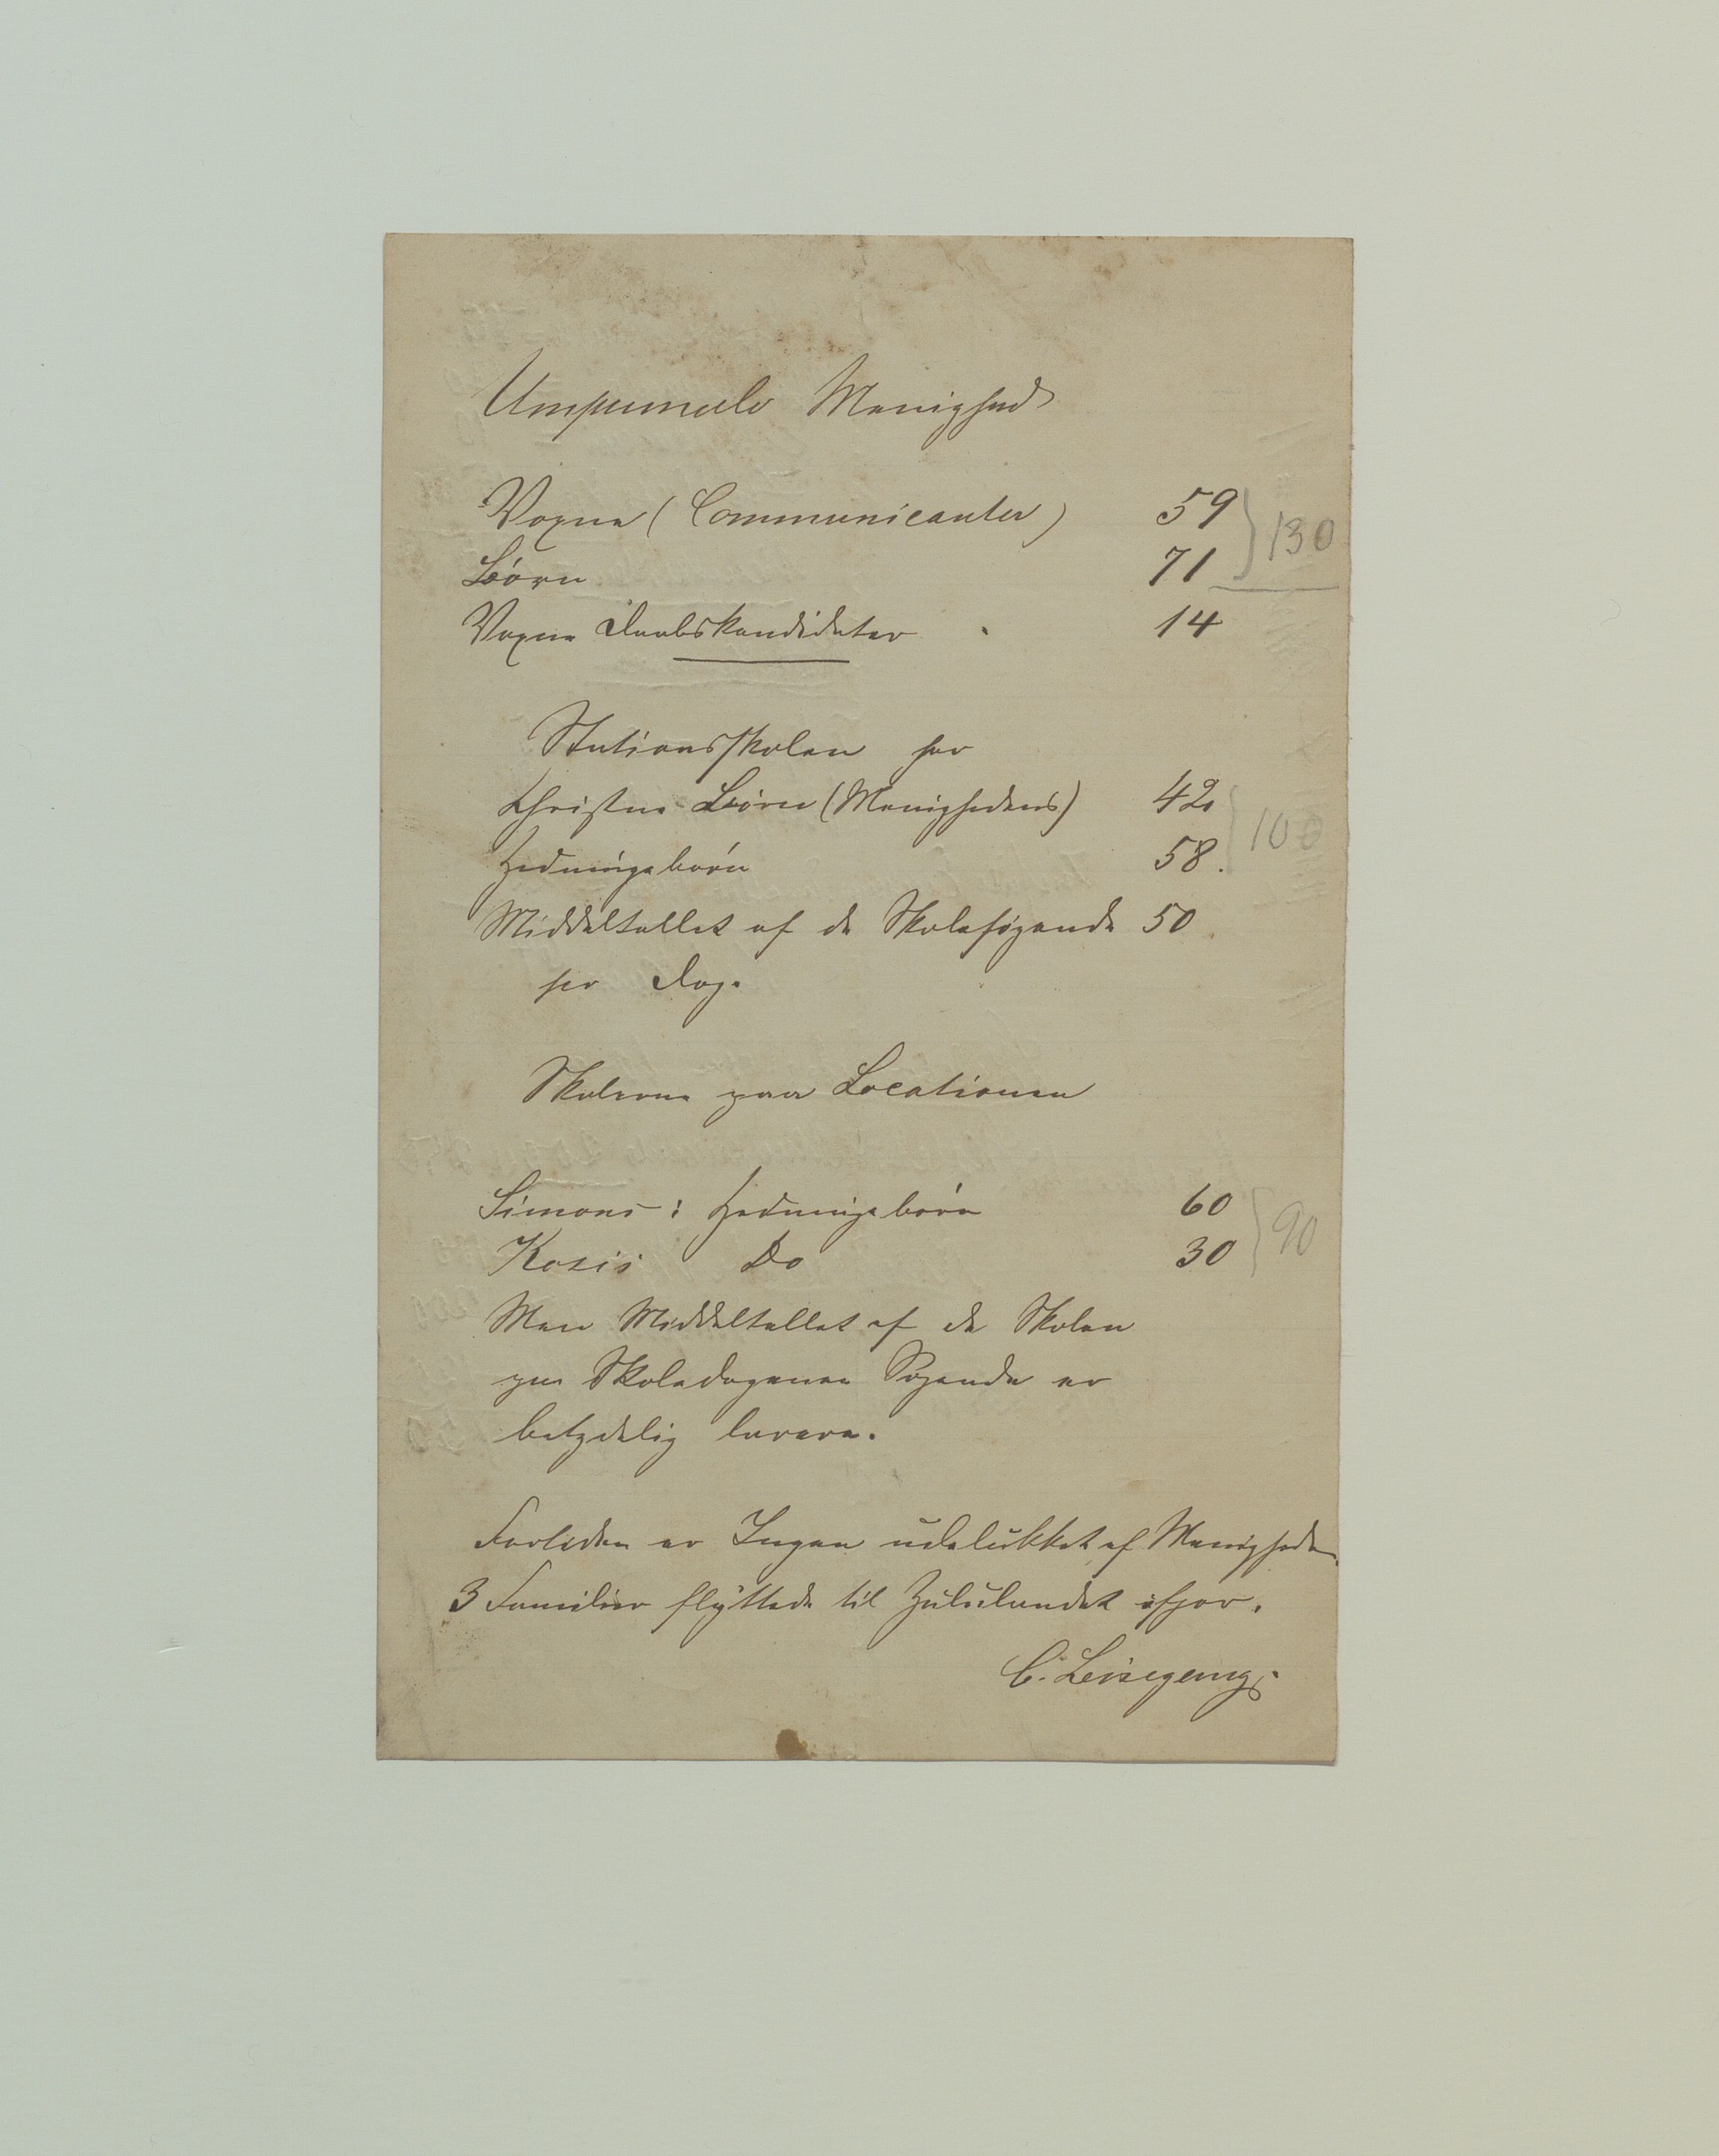 Umpumulo Menighed
Voxne (Communicanter) 59 } 130
Børn 71
Voxne Daabskandidater 14
Stationsskolen har
Christne Børn (Menighedens) 42 } 100
Hedningebørn 58.
Middeltallet af de Skolesøgende 50
per Dag.
Skolerne paa Locationen
Simons: Hedningebørn 60 } 90
Kosis Do 30
Men Middeltallet af de Skolen
paa Skoledagene Søgende er
betydelig lavere.
Forleden er Ingen udelukket af Menigheden.
3 Familier flyttede til Zululandet ifjor.
C. Leisegang.